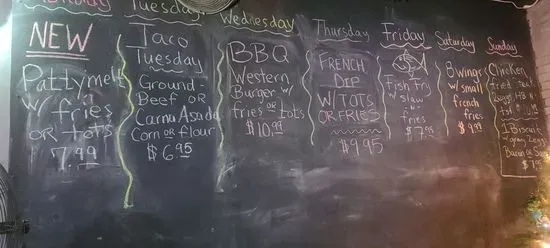 Monday
NEW
Pattymelt
w/ fries
OR tots
7.99
Tuesday
Taco
Tuesday
Ground
Beef OR
Carna Asada
Corn OR flour
$6.95
Wednesday
BBQ
Western
Burger w/
fries or tots
$10.99
Thursday
FRENCH
DIP
W/ TOTS
OR FRIES
$9.95
Friday
Fish Fry
w/ slaw
fries
$7.95
Saturday
8 wings
w/ small
french
fries
$9.99
Sunday
Chicken
fried
1 Biscuit
w/ gravy 2 eggs
Bacon or
$7.95